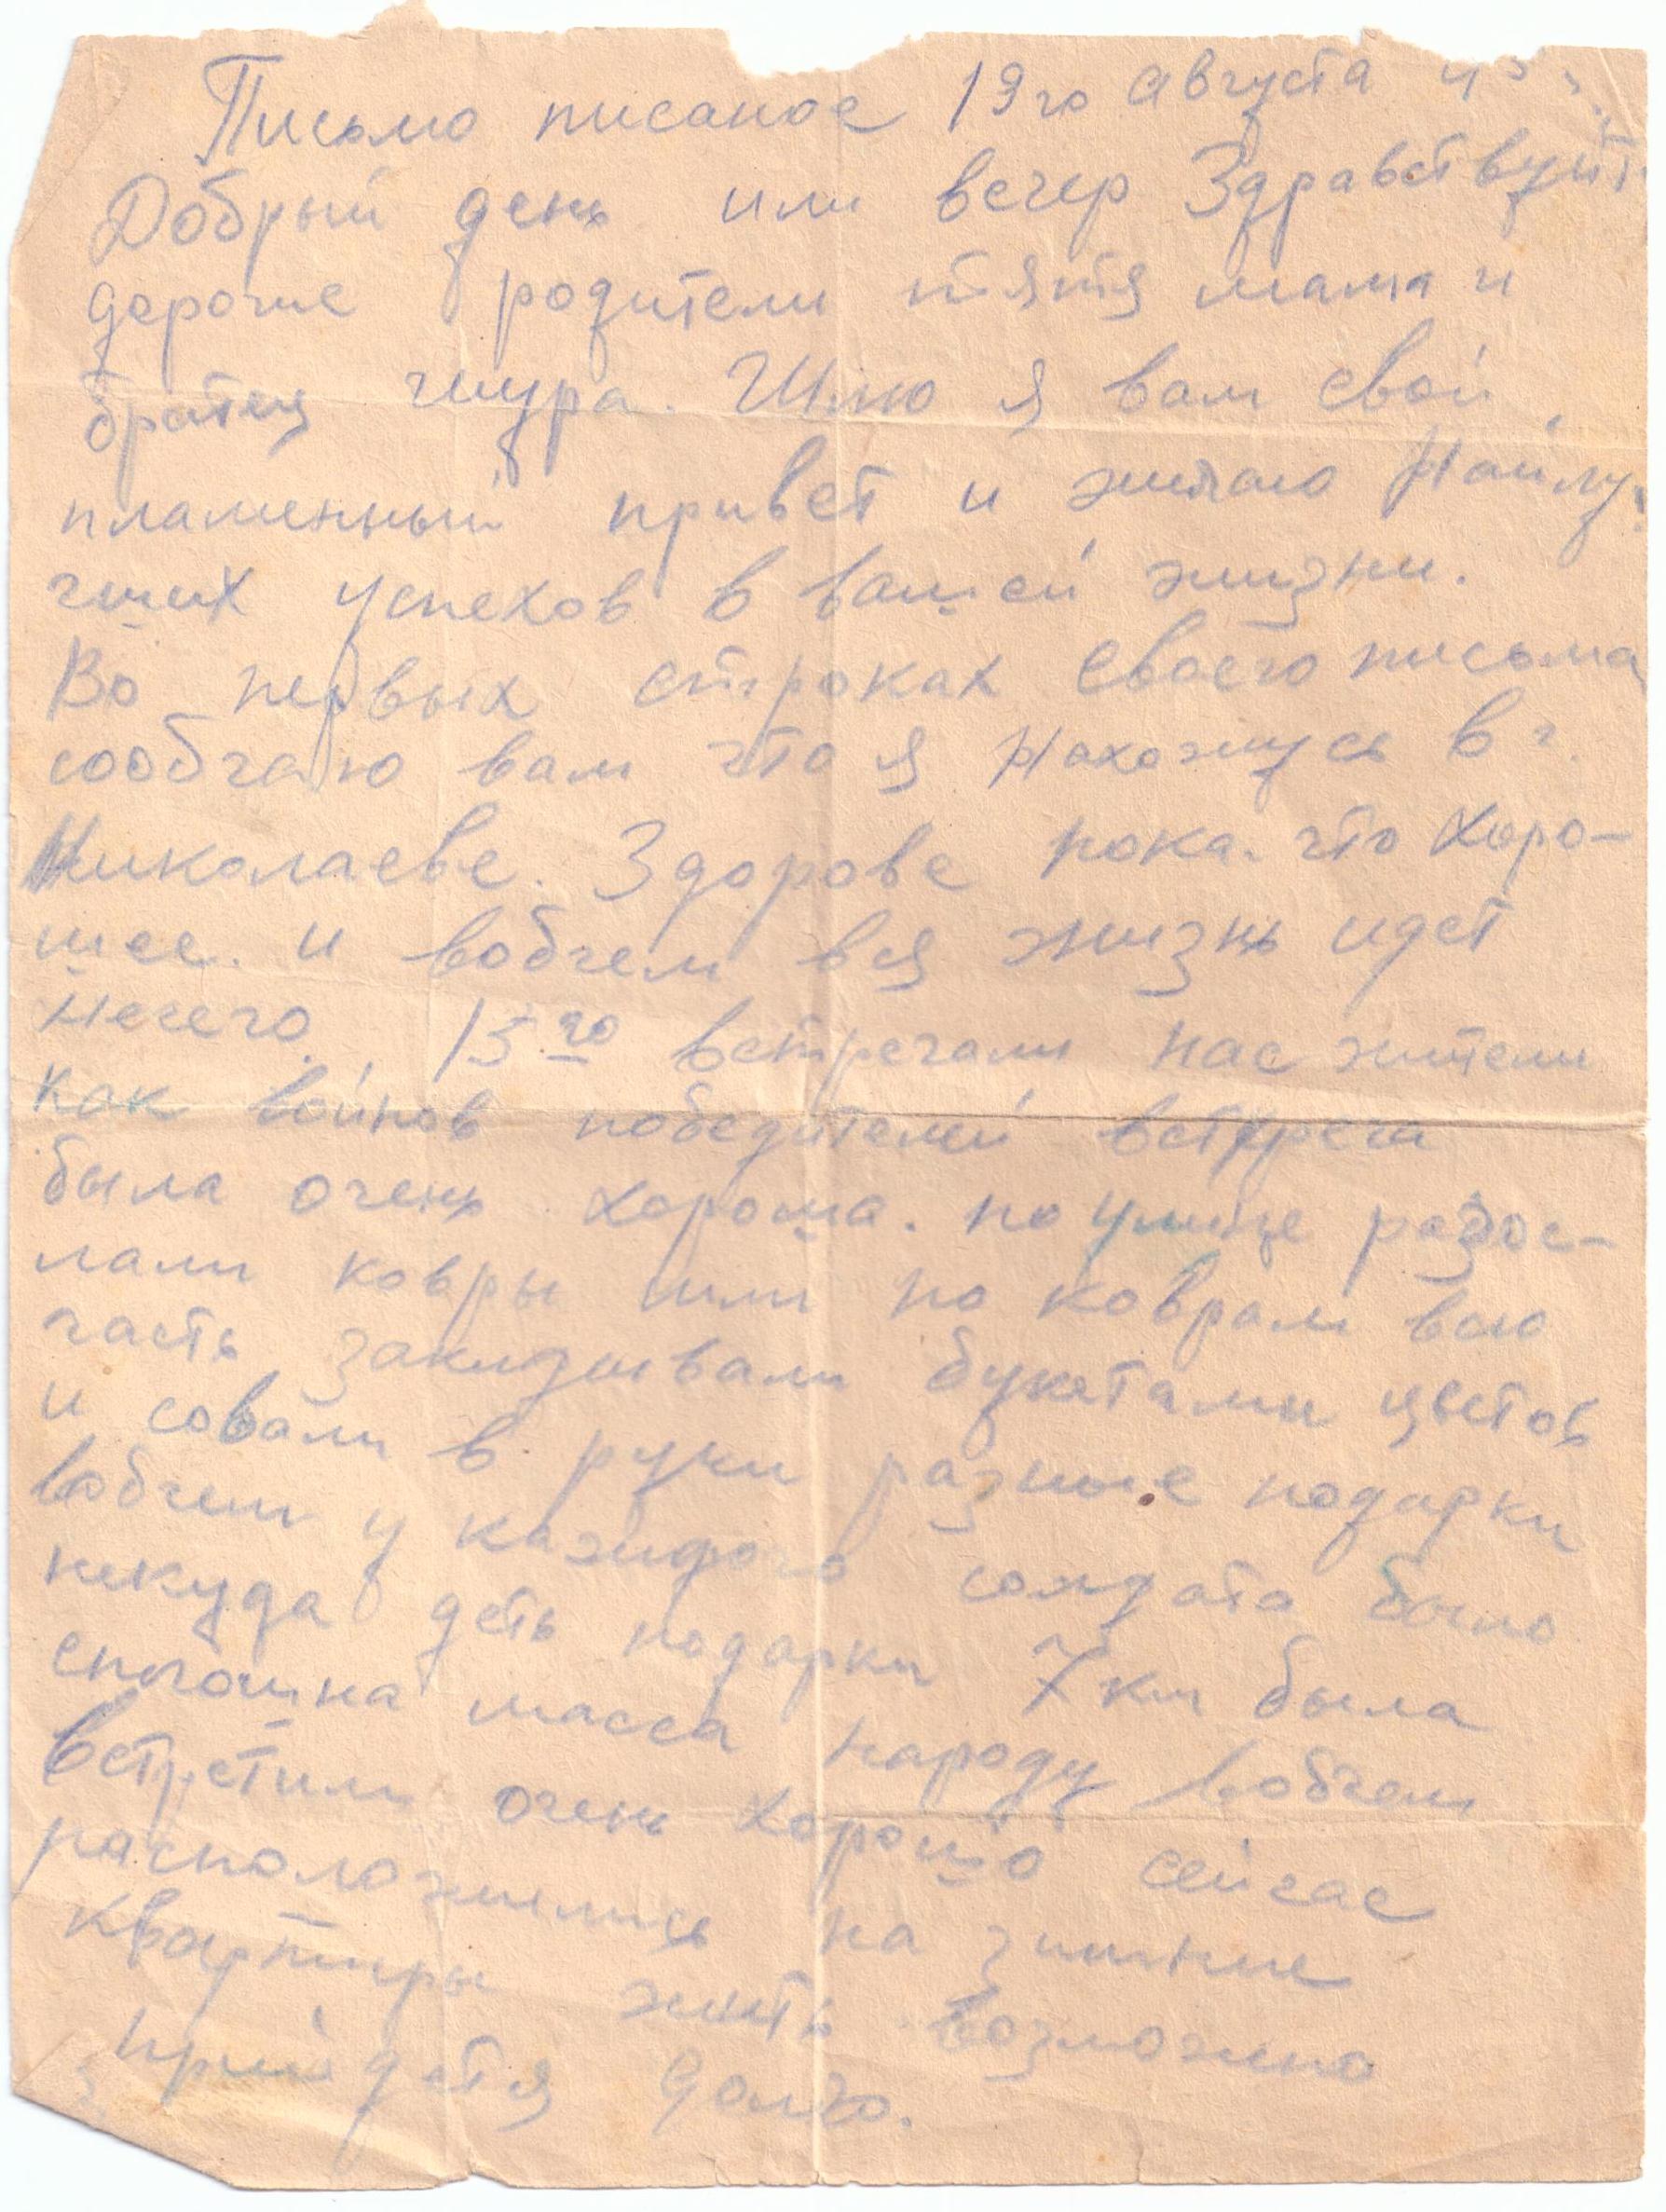 Письмо писаное 19го августа 45 г.
Добрый день или вечер Здравствуйте
дорогие родители тятя мама и
братец шура. Шлю я вам свой
пламенный привет и жилаю Найлу-
чших успехов в вашей жизни.
Во первых строках своего письма
сообчаю вам что я нахожусь в г.
Николаеве. Здоровe пока. что хоро-
шее. и вобчем вся жизнь идет
нечего. 15го встречали нас жители
как войнов победителей встреча
была очень хороша. по улице разос-
лали ковры шли по коврам всю
часть закидывали букетами цветов
и совали в руки разные подарки
вобчем у каждого солдата было
некуда деть подарки 7 км была
сплошна масса народу вобчем
встретили очень хорошо сейчас
расположились на зимние
квартиры жить возможно
прийдется долго.